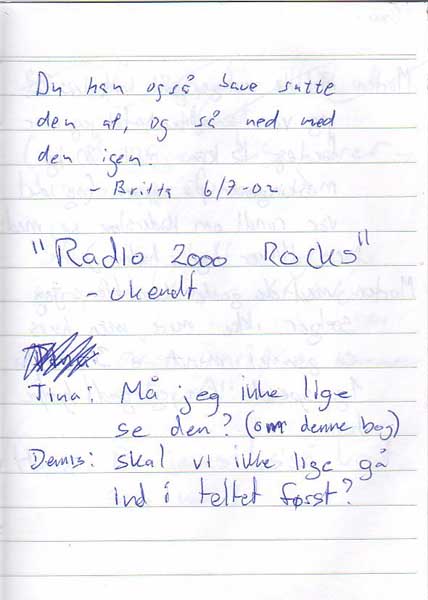 Du kan også bare sutte
den af, og så ned med
den igen.
- Britta 6/7-02
"Radio 2000 Rocks"
- ukendt
Tina: Må jeg ikke lige
se den? (om denne bog)
Dennis: skal vi ikke lige gå
ind i teltet først?